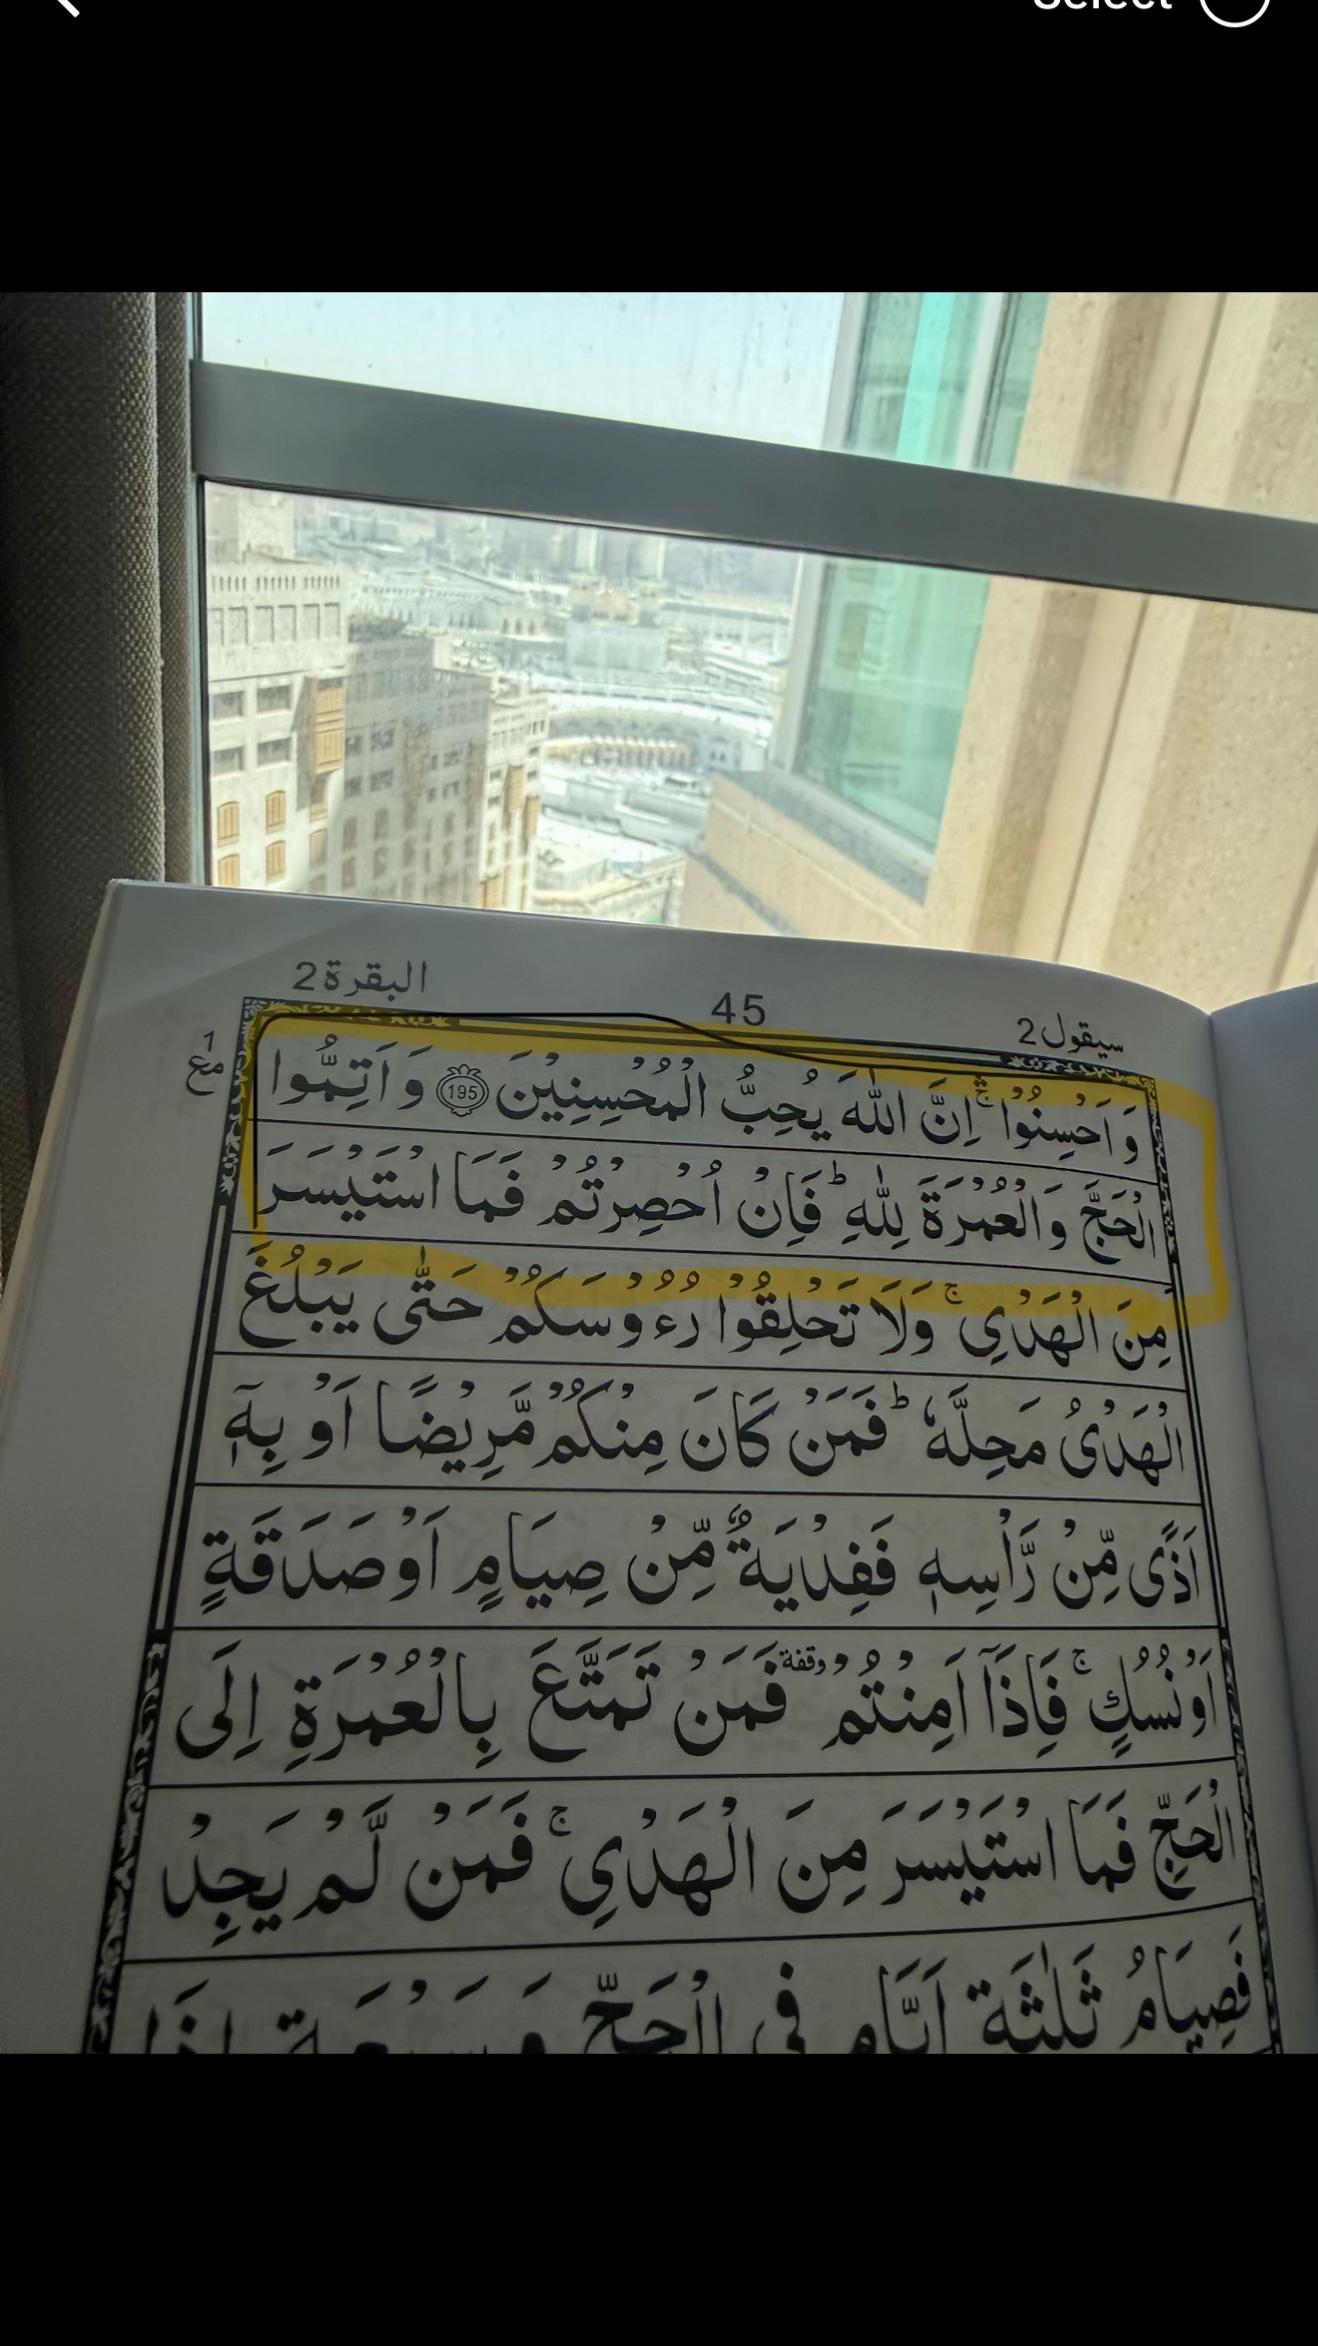 Select
البقرة 2
45
سيقول 2
1
مع
وَ اَحۡسِنُوۡا ۛۚ اِنَّ اللّٰهَ يُحِبُّ الۡمُحۡسِنِيۡنَ 195 وَ اَتِمُّوا
الۡحَجَّ وَالۡعُمۡرَةَ لِلّٰهِ ؕ فَاِنۡ اُحۡصِرۡتُمۡ فَمَا اسۡتَيۡسَرَ
مِنَ الۡهَدۡىِ ۚ وَلَا تَحۡلِقُوۡا رُءُوۡسَكُمۡ حَتّٰى يَبۡلُغَ
الۡهَدۡىُ مَحِلَّهٗ ؕ فَمَنۡ كَانَ مِنۡكُمۡ مَّرِيۡضًا اَوۡ بِهٖۤ
اَذًى مِّنۡ رَّاۡسِهٖ فَفِدۡيَةٌ مِّنۡ صِيَامٍ اَوۡ صَدَقَةٍ
اَوۡ نُسُكٍ ۚ فَاِذَاۤ اَمِنۡتُمۡ وقفة فَمَنۡ تَمَتَّعَ بِالۡعُمۡرَةِ اِلَى
الۡحَجِّ فَمَا اسۡتَيۡسَرَ مِنَ الۡهَدۡىِ ۚ فَمَنۡ لَّمۡ يَجِدۡ
فَصِيَامُ ثَلٰثَةِ اَيَّامٍ فِى الۡحَجِّ وَسَبۡعَةٍ اِذَا